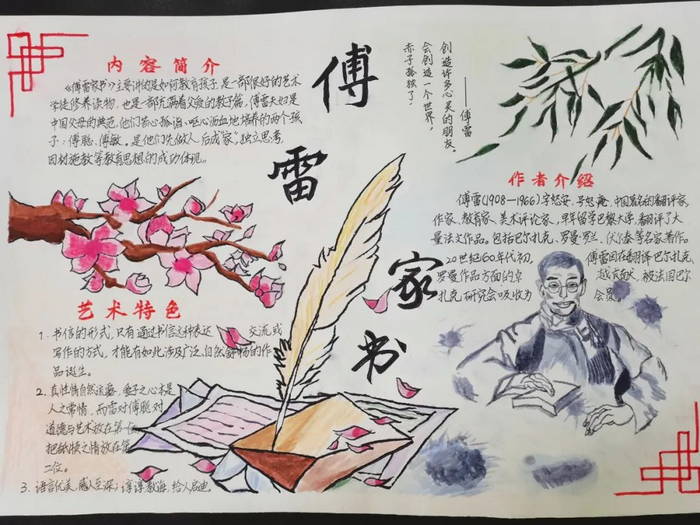 内容简介
《傅雷家书》主要讲的是如何教育孩子,是一部很好的艺术
学徒修养读物,也是一部充满着父爱的教子篇,傅雷夫妇是
中国父母的典范,他们苦心孤诣、呕心沥血地培养的两个孩
子:傅聪、傅敏。是他们先做人后成家,独立思考,
因材施教等教育思想的成功体现。
傅雷家书
赤子孤独了,
会创造一个世界,
创造许多心灵的朋友。
——傅雷
作者介绍
傅雷(1908—1966)字怒安,号怒庵,中国著名的翻译家,
作家、教育家、美术评论家,早年留学巴黎大学,翻译了大
量法文作品。包括巴尔扎克、罗曼·罗兰、伏尔泰等名家著作。
20世纪60年代初,傅雷因在翻译巴尔扎克、
罗曼作品方面的卓越贡献,被法国巴尔
扎克研究会吸收为会员。
艺术特色
1. 书信的形式,只有通过书信这种表达交流或
写作的方式,才能有如此涉及广泛,自然舒畅的作
品诞生。
2. 真性情自然流露,爱子之心本是
人之常情,而雷对傅聪对
道德与艺术放在第一位,
把舐犊之情放在第
二位。
3. 语言优美,感人至深;谆谆教诲,给人启迪。